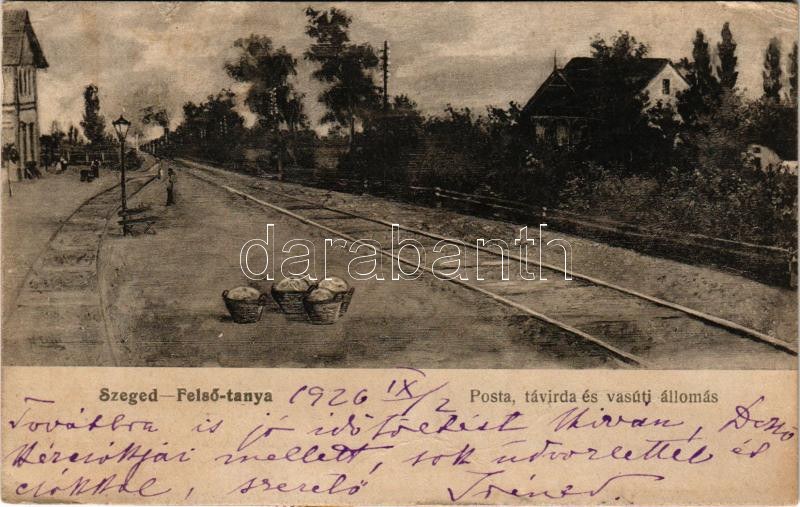 darabanth
Szeged—Felső-tanya 1926 IX/2 Posta, távirda és vasúti állomás
Továbbra is jó időtöltést kíván, Dezső
kézcsókjai mellett, sok üdvözlettel és
csókkal, szerető Iréned.